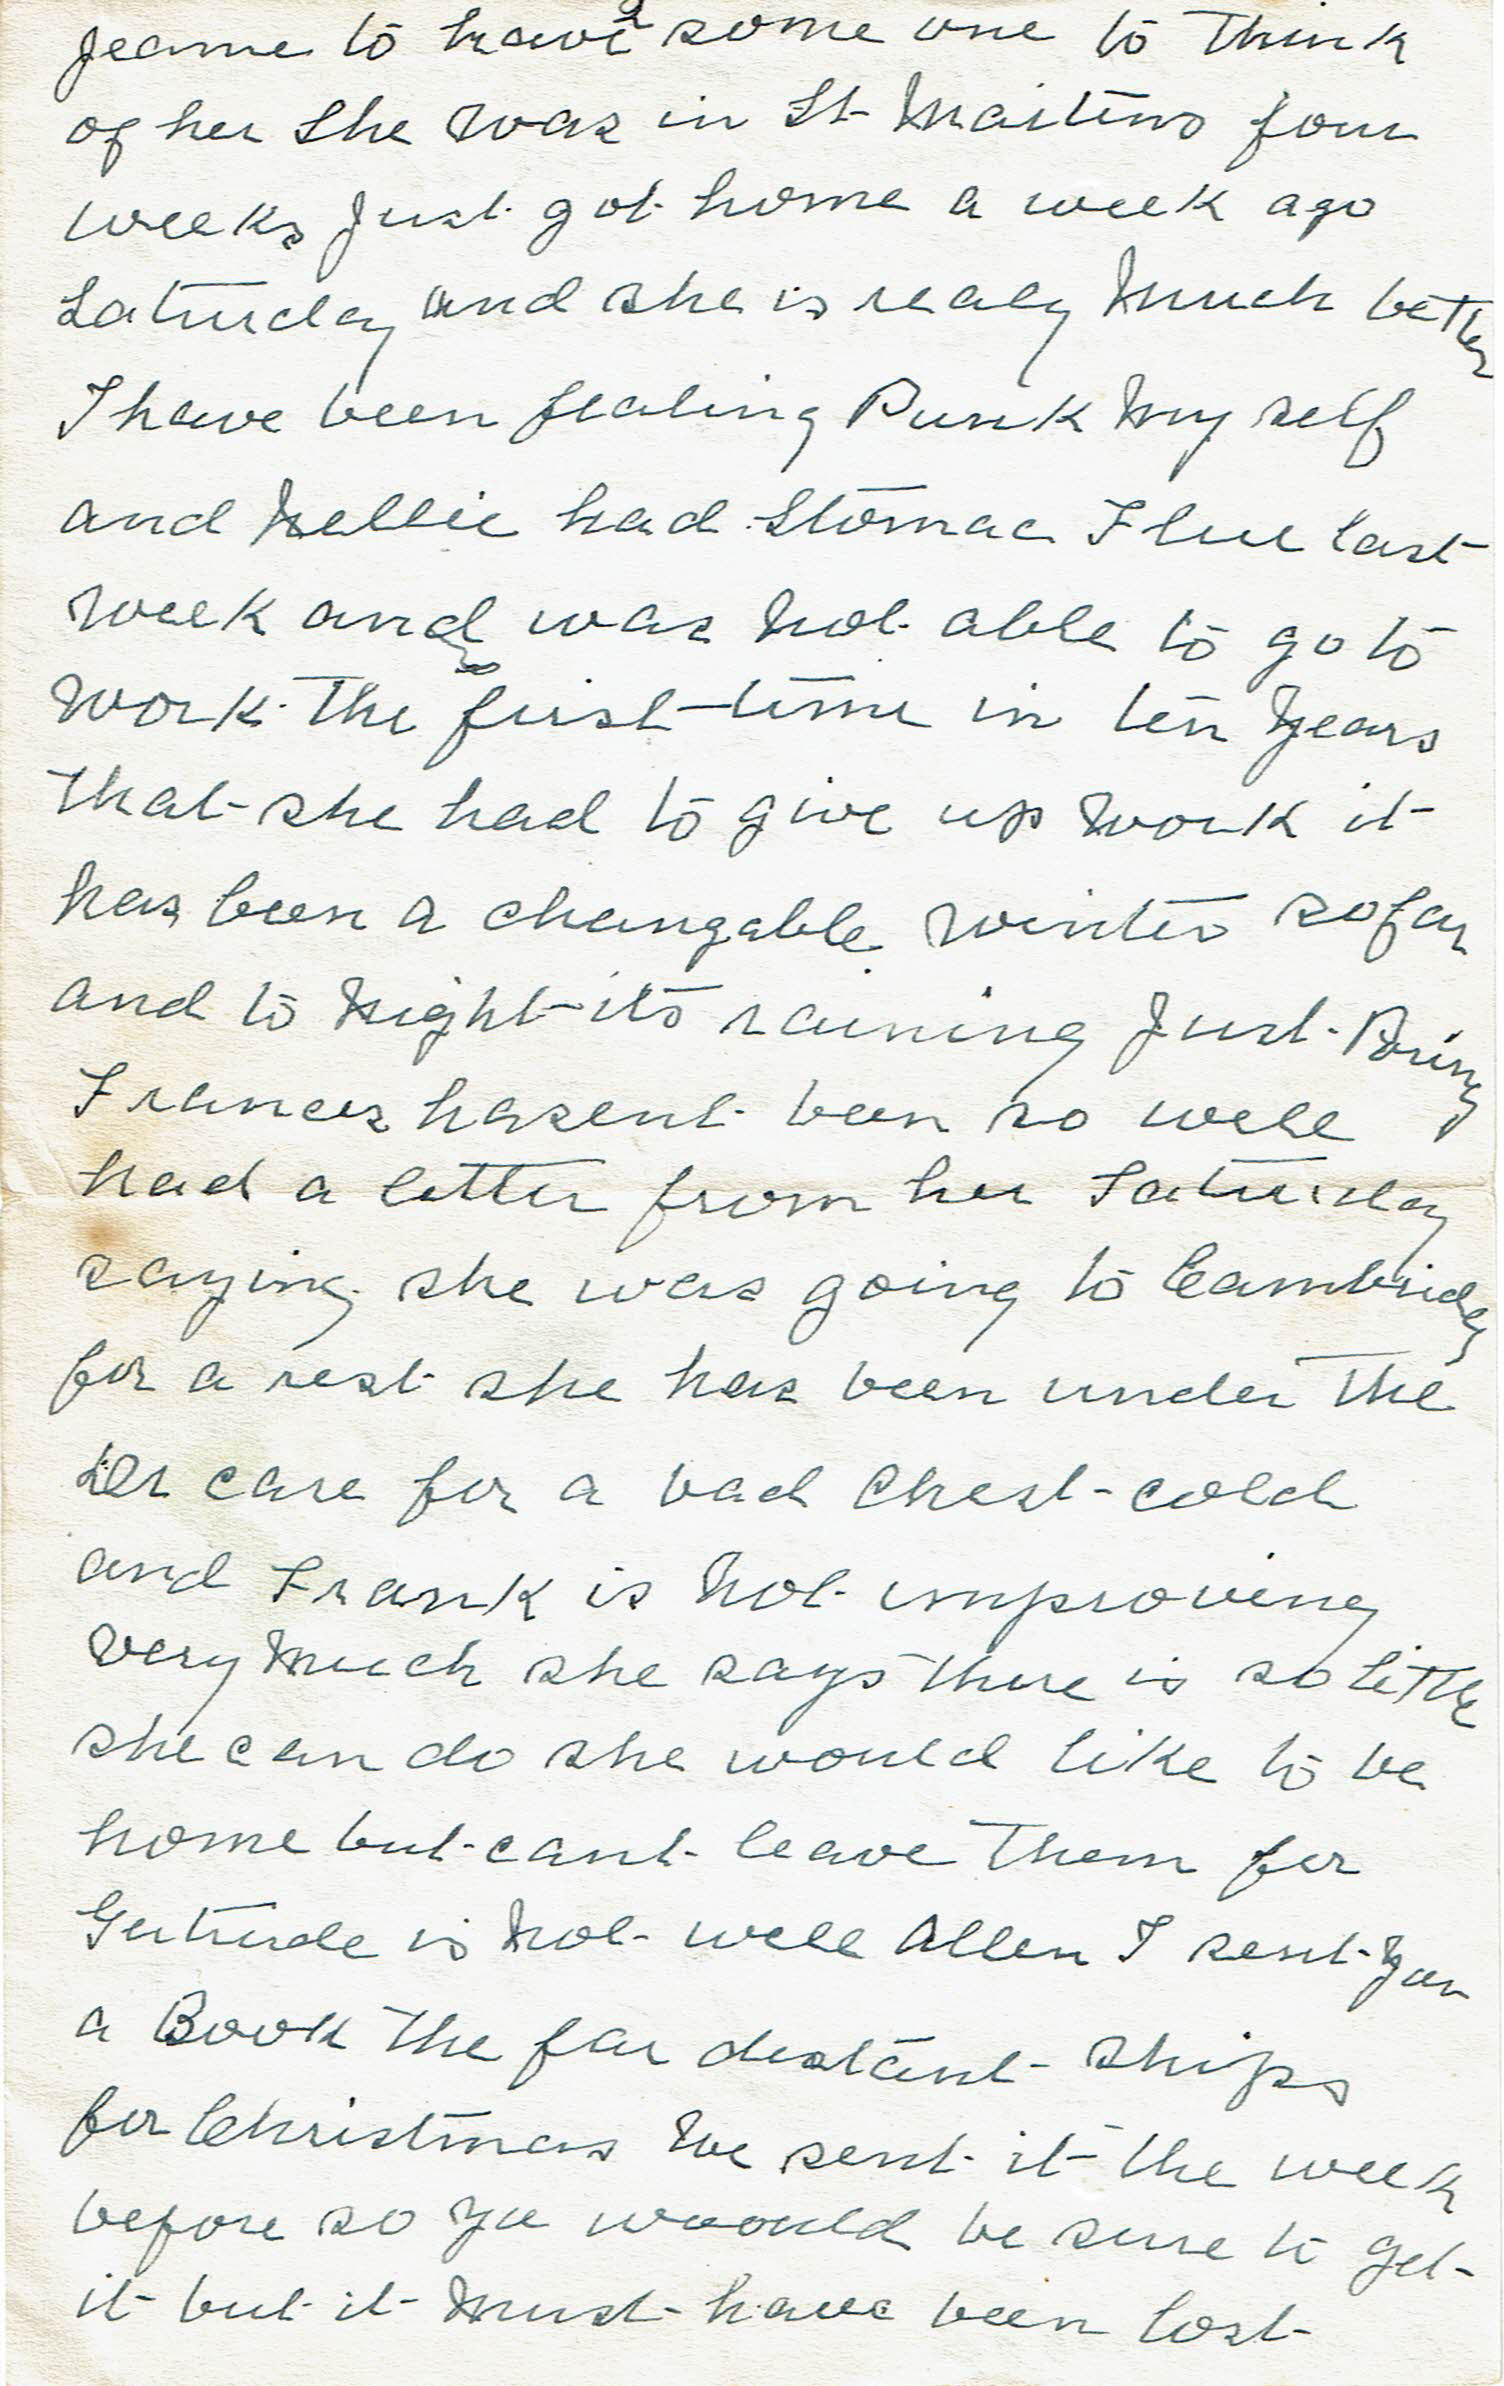 Jeanne to have some one to think
of her She was in St Martins four
weeks Just got home a week ago
Saturday and she is realy Much better
I have been fealing Punk My self
and Nellie had Stomac Flue last
week and was Not able to go to
work The first time in ten Years
that she had to give up work it
has been a changable winter so far
and to Night its raining Just Poring
Frances hasent been so well
had a letter from her Saturday
saying she was going to Cambridg
for a rest she has been under the
Dr care for a bad Chest cold
and Frank is Not improving
very Much she says there is so little
she can do she would like to be
home but cant leave them for
Gertrude is Not well Allen I sent You
a Book the far distant ships
for Christmas We sent it the week
before so you woould be sure to get
it but it Must have been lost